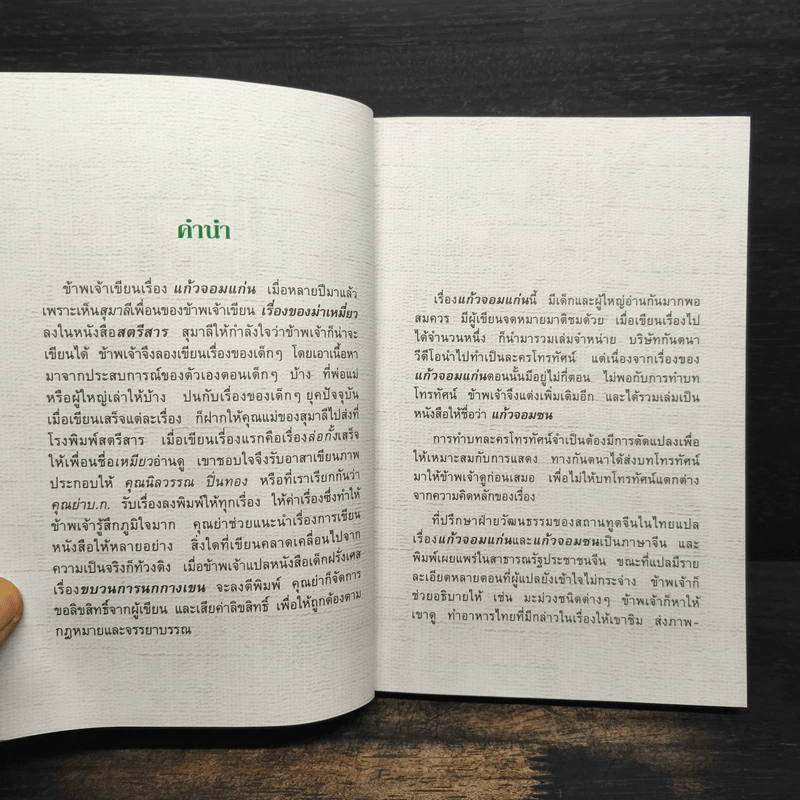 คำนำ
ข้าพเจ้าเขียนเรื่อง แก้วจอมแก่น เมื่อหลายปีมาแล้ว
เพราะเห็นสุมาลีเพื่อนของข้าพเจ้าเขียน เรื่องของม่าเหมี่ยว
ลงในหนังสือสตรีสาร สุมาลีให้กำลังใจว่าข้าพเจ้าก็น่าจะ
เขียนได้ ข้าพเจ้าจึงลองเขียนเรื่องของเด็กๆ โดยเอาเนื้อหา
มาจากประสบการณ์ของตัวเองตอนเด็กๆ บ้าง ที่พ่อแม่
หรือผู้ใหญ่เล่าให้บ้าง ปนกับเรื่องของเด็กๆ ยุคปัจจุบัน
เมื่อเขียนเสร็จแต่ละเรื่อง ก็ฝากให้คุณแม่ของสุมาลีไปส่งที่
โรงพิมพ์สตรีสาร เมื่อเขียนเรื่องแรกคือเรื่องล่อกั้งเสร็จ
ให้เพื่อนชื่อเหมียวอ่านดู เขาชอบใจจึงรับอาสาเขียนภาพ
ประกอบให้ คุณนิลวรรณ ปิ่นทอง หรือที่เราเรียกกันว่า
คุณย่าบ.ก. รับเรื่องลงพิมพ์ให้ทุกเรื่อง ให้ค่าเรื่องซึ่งทำให้
ข้าพเจ้ารู้สึกภูมิใจมาก คุณย่าช่วยแนะนำเรื่องการเขียน
หนังสือให้หลายอย่าง สิ่งใดที่เขียนคลาดเคลื่อนไปจาก
ความเป็นจริงก็ทัวงติง เมื่อข้าพเจ้าแปลหนังสือเด็กฝรั่งเศส
เรื่องขบวนการนกกางเขน จะลงตีพิมพ์ คุณย่าก็จัดการ
ขอลิขสิทธิ์จากผู้เขียน และเสียค่าลิขสิทธิ์ เพื่อให้ถูกต้องตาม
กฎหมายและจรรยาบรรณ
เรื่องแก้วจอมแก่นนี้ มีเด็กและผู้ใหญ่อ่านกันมากพอ
สมควร มีผู้เขียนจดหมายมาติชมด้วย เมื่อเขียนเรื่องไป
ได้จำนวนหนึ่ง ก็นำมารวมเล่มจำหน่าย บริษัทกันตนา
วีดีโอนำไปทำเป็นละครโทรทัศน์ แต่เนื่องจากเรื่องของ
แก้วจอมแก่นตอนนั้นมีอยู่ไม่กี่ตอน ไม่พอกับการทำบท
โทรทัศน์ ข้าพเจ้าจึงแต่งเพิ่มเติมอีก และได้รวมเล่มเป็น
หนังสือให้ชื่อว่า แก้วจอมซน
การทำบทละครโทรทัศน์จำเป็นต้องมีการดัดแปลงเพื่อ
ให้เหมาะสมกับการแสดง ทางกันตนาได้ส่งบทโทรทัศน์
มาให้ข้าพเจ้าดูก่อนเสมอ เพื่อไม่ให้บทโทรทัศน์แตกต่าง
จากความคิดหลักของเรื่อง
ที่ปรึกษาฝ่ายวัฒนธรรมของสถานทูตจีนในไทยแปล
เรื่องแก้วจอมแก่นและแก้วจอมซนเป็นภาษาจีน และ
พิมพ์เผยแพร่ในสาธารณรัฐประชาชนจีน ขณะที่แปลมีราย
ละเอียดหลายตอนที่ผู้แปลยังเข้าใจไม่กระจ่าง ข้าพเจ้าก็
ช่วยอธิบายให้ เช่น มะม่วงชนิดต่างๆ ข้าพเจ้าก็หาให้
เขาดู ทำอาหารไทยที่มีกล่าวในเรื่องให้เขาชิม ส่งภาพ-